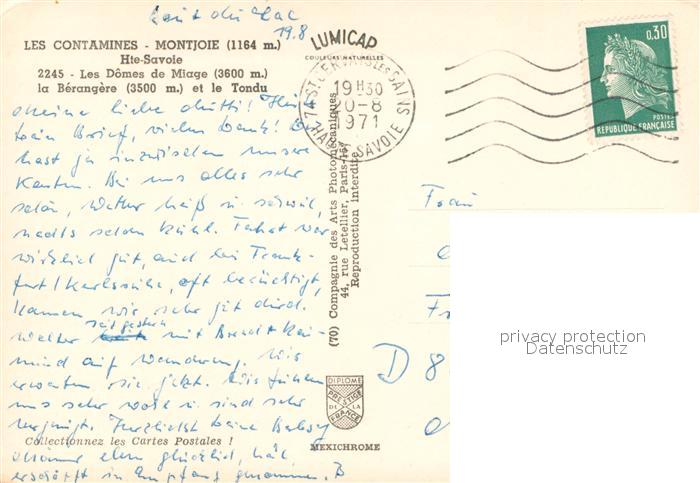 19.8
LES CONTAMINES - MONTJOIE (1164 m.)
Hte-Savoie
2245 - Les Dômes de Miage (3600 m.)
la Bérangère (3500 m.) et le Tondu
Meine liebe Mutti!
Brief, vielen Dank!
hast ja inzwischen unsere
Karten. Bei uns alles sehr
schön, Wetter heiß u. schwül,
nachts schön kühl. Fahrt war
wirklich gut, auch bei Frank-
furt/Karlsruhe, oft berüchtigt,
kamen wir sehr gut durch.
Walter seit gestern mit Berndt
auf Wanderung. Wir
erwarten sie jetzt. Wir fühlen
uns sehr wohl u. sind sehr
vergnügt. Herzlichst Deine
Collectionnez les Cartes Postales !
glücklich, hat
in Empfang genommen. B
LUMICAP
COULEURS NATURELLES
74 ST GERVAIS LES BAINS
19H30
20-8
1971
HTE SAVOIE
0,30
POSTES
REPUBLIQUE FRANÇAISE
(70) Compagnie des Arts Photomécaniques
44, rue Letellier, Paris-15e
Reproduction interdite
DIPLOME
PRESTIGE
DE LA
FRANCE
MEXICHROME
Frau
Fr
D 8
privacy protection
Datenschutz